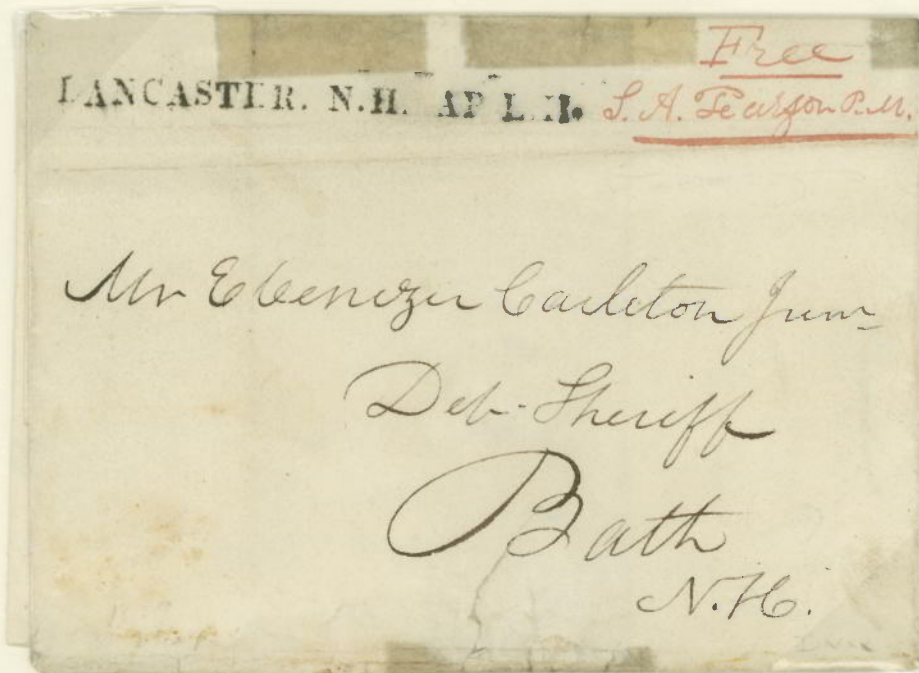 Free
LANCASTER. N.H. AP L.
S. A. Pearson P.M.
Mr Ebenezer Carleton Junr
Deb. Sheriff
Bath
N.H.